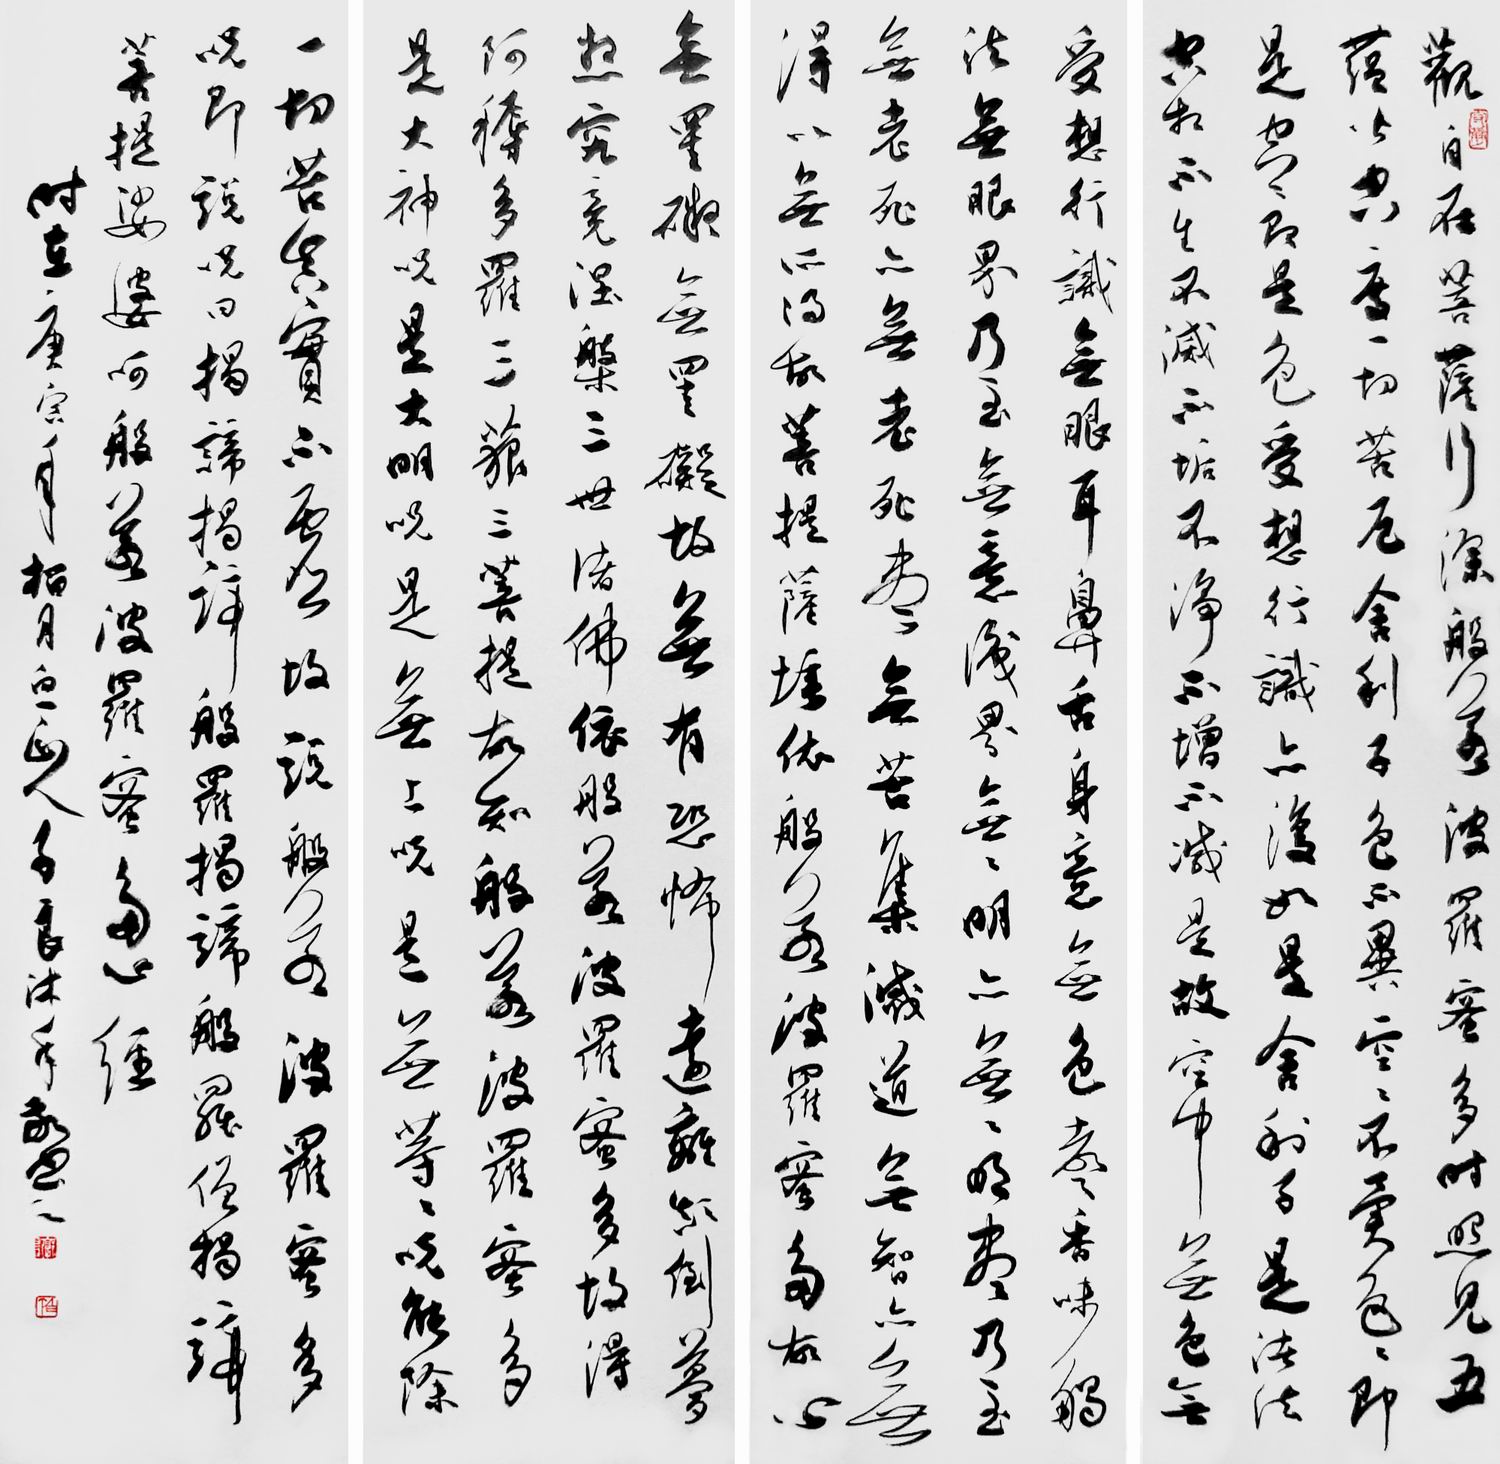 觀自在菩薩行深般若波羅蜜多時照見五
蘊皆空度一切苦厄舍利子色不異空〻不異色〻即
是空〻即是色受想行識亦復如是舍利子是諸法
空相不生不滅不垢不淨不增不減是故空中無色無
受想行識無眼耳鼻舌身意無色聲香味觸
法無眼界乃至無意識界無〻明亦無〻明盡乃至
無老死亦無老死盡無苦集滅道無智亦無
得以無所得故菩提薩埵依般若波羅蜜多故心
無罣礙無罣礙故無有恐怖遠離顛倒夢
想究竟涅槃三世諸佛依般若波羅蜜多故得
阿耨多羅三藐三菩提故知般若波羅蜜多
是大神咒是大明咒是無上咒是無等〻咒能除
一切苦真實不虛故說般若波羅蜜多
咒即說咒曰揭諦揭諦般羅揭諦般羅僧揭諦
菩提娑婆呵般若波羅蜜多心經
時在庚寅年月山人子良沐手敬書之